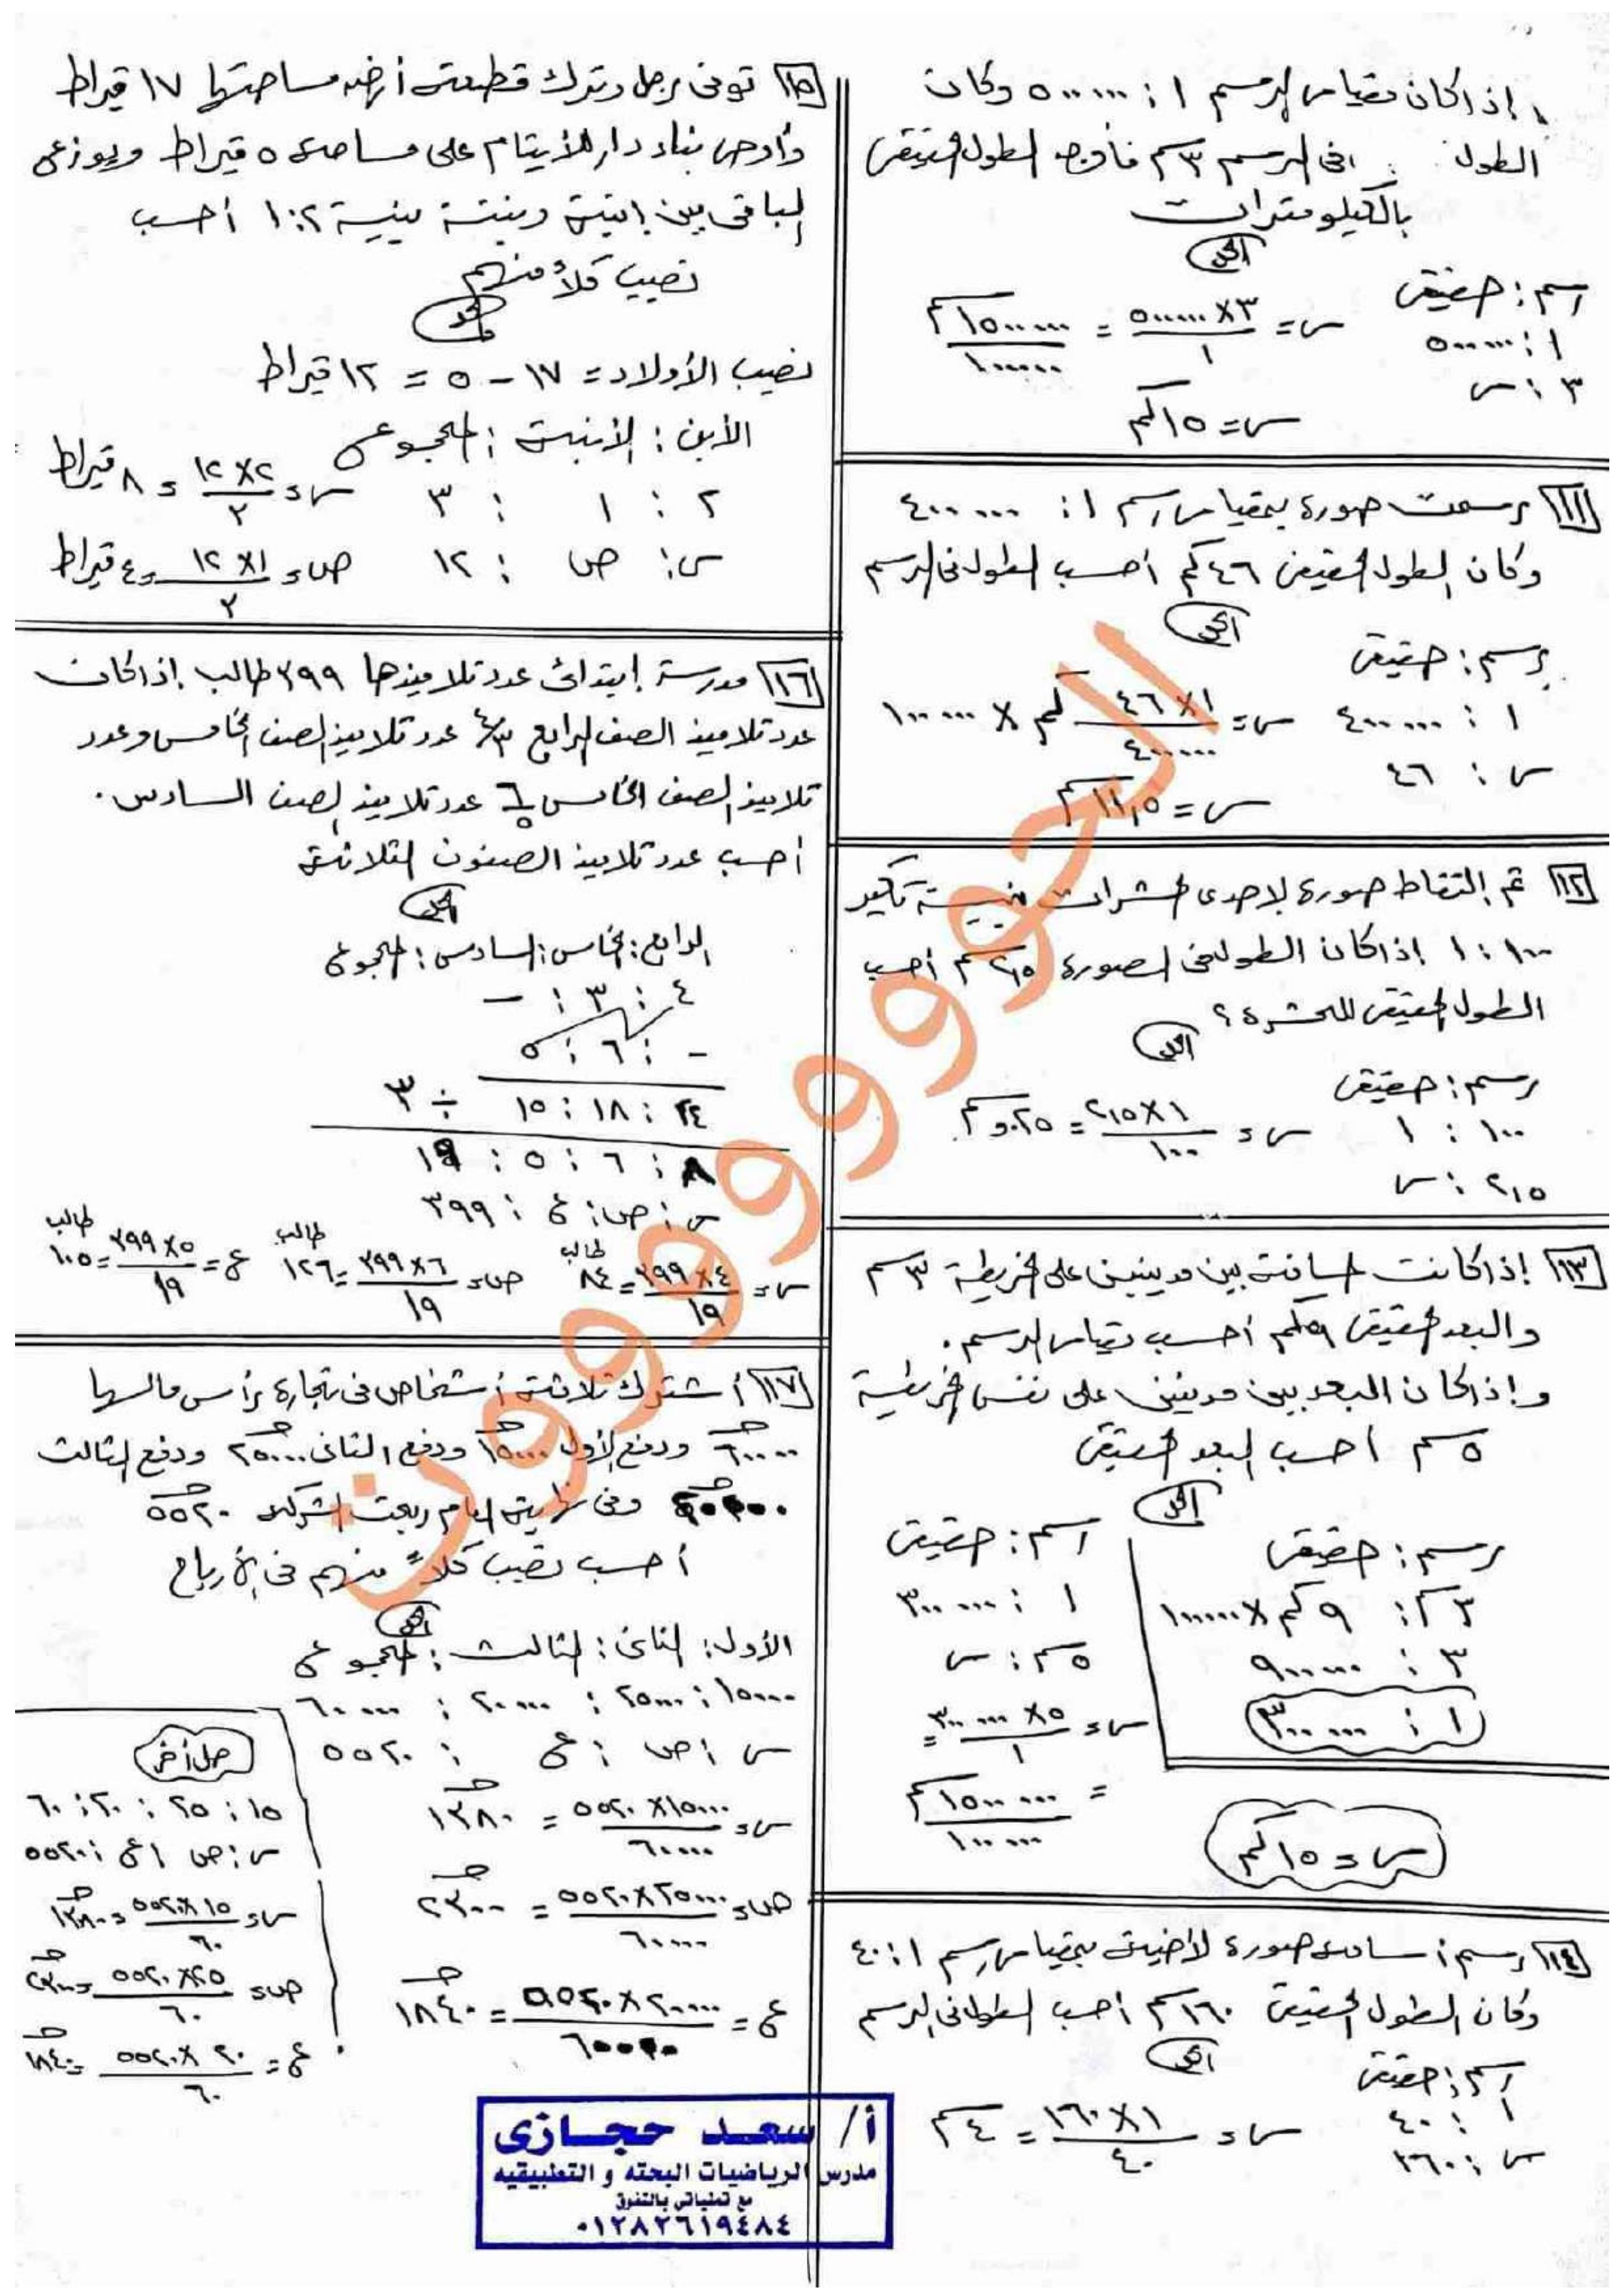 إذا كان مقياس الرسم ١ : ٥٠٠٠٠٠ وكان
الطول في الرسم ٣ سم فأوجد الطول الحقيقى
بالكيلومترات
الحل
رسم : حقيقى
١ : ٥٠٠٠٠٠
٣ : س
س = ٣ × ٥٠٠٠٠٠ / ١ = ١٥٠٠٠٠٠ سم / ١٠٠٠٠٠
س = ١٥ كم
١١ رسمت صورة بمقياس رسم ١ : ٤٠٠٠٠٠
وكان الطول الحقيقى ٤٦ كم أحسب الطول فى الرسم
الحل
رسم : حقيقى
١ : ٤٠٠٠٠٠
س : ٤٦
س = ١ × ٤٦ كم × ١٠٠٠٠٠ / ٤٠٠٠٠٠
س = ١١,٥ سم
١٢ تم إلتقاط صورة لإحدى الحشرات بنسبة تكبير
١٠٠ : ١ إذا كان الطول فى الصورة ٢,٥ سم أحسب
الطول الحقيقى للحشرة ؟
الحل
رسم : حقيقى
١٠٠ : ١
٢,٥ : س
س = ١ × ٢,٥ / ١٠٠ = ٠,٠٢٥ سم
١٣ إذا كانت المسافة بين مدينتين على الخريطة ٣ سم
والبعد الحقيقى ٩ كم أحسب مقياس الرسم .
وإذا كان البعد بين مدينتين على نفس الخريطة
٥ سم أحسب البعد الحقيقى
الحل
رسم : حقيقى
٣ سم : ٩ كم × ١٠٠٠٠٠
٣ : ٩٠٠٠٠٠
١ : ٣٠٠٠٠٠
رسم : حقيقى
١ : ٣٠٠٠٠٠
٥ سم : س
س = ٥ × ٣٠٠٠٠٠ / ١ =
= ١٥٠٠٠٠٠ سم / ١٠٠٠٠٠
س = ١٥ كم
١٤ رسم أسامة صورة لأخيه بمقياس رسم ١ : ٤٠
وكان الطول الحقيقى ١٦٠ سم أحسب الطول فى الرسم
الحل
رسم : حقيقى
١ : ٤٠
س : ١٦٠
س = ١ × ١٦٠ / ٤٠ = ٤ سم
١٥ توفى رجل وترك قطعة أرض مساحتها ١٧ قيراط
وأوصى بناء دار للأيتام على مساحة ٥ قيراط ويوزع
الباقى بين إبنه وبنته بنسبة ٢ : ١ أحسب
نصيب كلاً منهم
الحل
نصيب الأولاد = ١٧ - ٥ = ١٢ قيراط
الأبن : الأبنة : المجموع
٢ : ١ : ٣
س : ص : ١٢
س = ٢ × ١٢ / ٣ = ٨ قيراط
ص = ١ × ١٢ / ٣ = ٤ قيراط
١٦ مدرسة إبتدائى عدد تلاميذها ٣٩٩ طالب إذا كان
عدد تلاميذ الصف الرابع ٤/٣ عدد تلاميذ الصف الخامس وعدد
تلاميذ الصف الخامس ٦/٥ عدد تلاميذ الصف السادس .
أحسب عدد تلاميذ الصفوف الثلاثة
الحل
الرابع : الخامس : السادس : المجموع
٤ : ٣ : -
- : ٦ : ٥
٢٤ : ١٨ : ١٥ ÷ ٣
٨ : ٦ : ٥ : ١٩
س : ص : ع : ٣٩٩
س = ٤ × ٣٩٩ / ١٩ = ٨٤ طالب
ص = ٦ × ٣٩٩ / ١٩ = ١٢٦ طالب
ع = ٥ × ٣٩٩ / ١٩ = ١٠٥ طالب
١٧ أشترك ثلاثة أشخاص فى تجارة رأس مالها
٦٠٠٠٠ جـ ودفع الأول ١٥٠٠٠ جـ ودفع الثانى ٢٥٠٠٠ جـ ودفع الثالث
٢٠٠٠٠ جـ وفى نهاية العام ربحت الشركة ٥٥٢٠ جـ
أحسب نصيب كلاً منهم فى الأرباح
الحل
الأول : الثانى : الثالث : المجموع
١٥٠٠٠ : ٢٥٠٠٠ : ٢٠٠٠٠ : ٦٠٠٠٠
س : ص : ع : ٥٥٢٠
س = ١٥٠٠٠ × ٥٥٢٠ / ٦٠٠٠٠ = ١٣٨٠ جـ
ص = ٢٥٠٠٠ × ٥٥٢٠ / ٦٠٠٠٠ = ٢٣٠٠ جـ
ع = ٢٠٠٠٠ × ٥٥٢٠ / ٦٠٠٠٠ = ١٨٤٠ جـ
حل أخر
١٥ : ٢٥ : ٢٠ : ٦٠
س : ص : ع : ٥٥٢٠
س = ١٥ × ٥٥٢٠ / ٦٠ = ١٣٨٠ جـ
ص = ٢٥ × ٥٥٢٠ / ٦٠ = ٢٣٠٠ جـ
ع = ٢٠ × ٥٥٢٠ / ٦٠ = ١٨٤٠ جـ
أ/ سعد حجازى
مدرس الرياضيات البحته و التطبيقيه
مع تمنياتى بالتفوق
٠١٢٨٢٦١٩٤٨٤